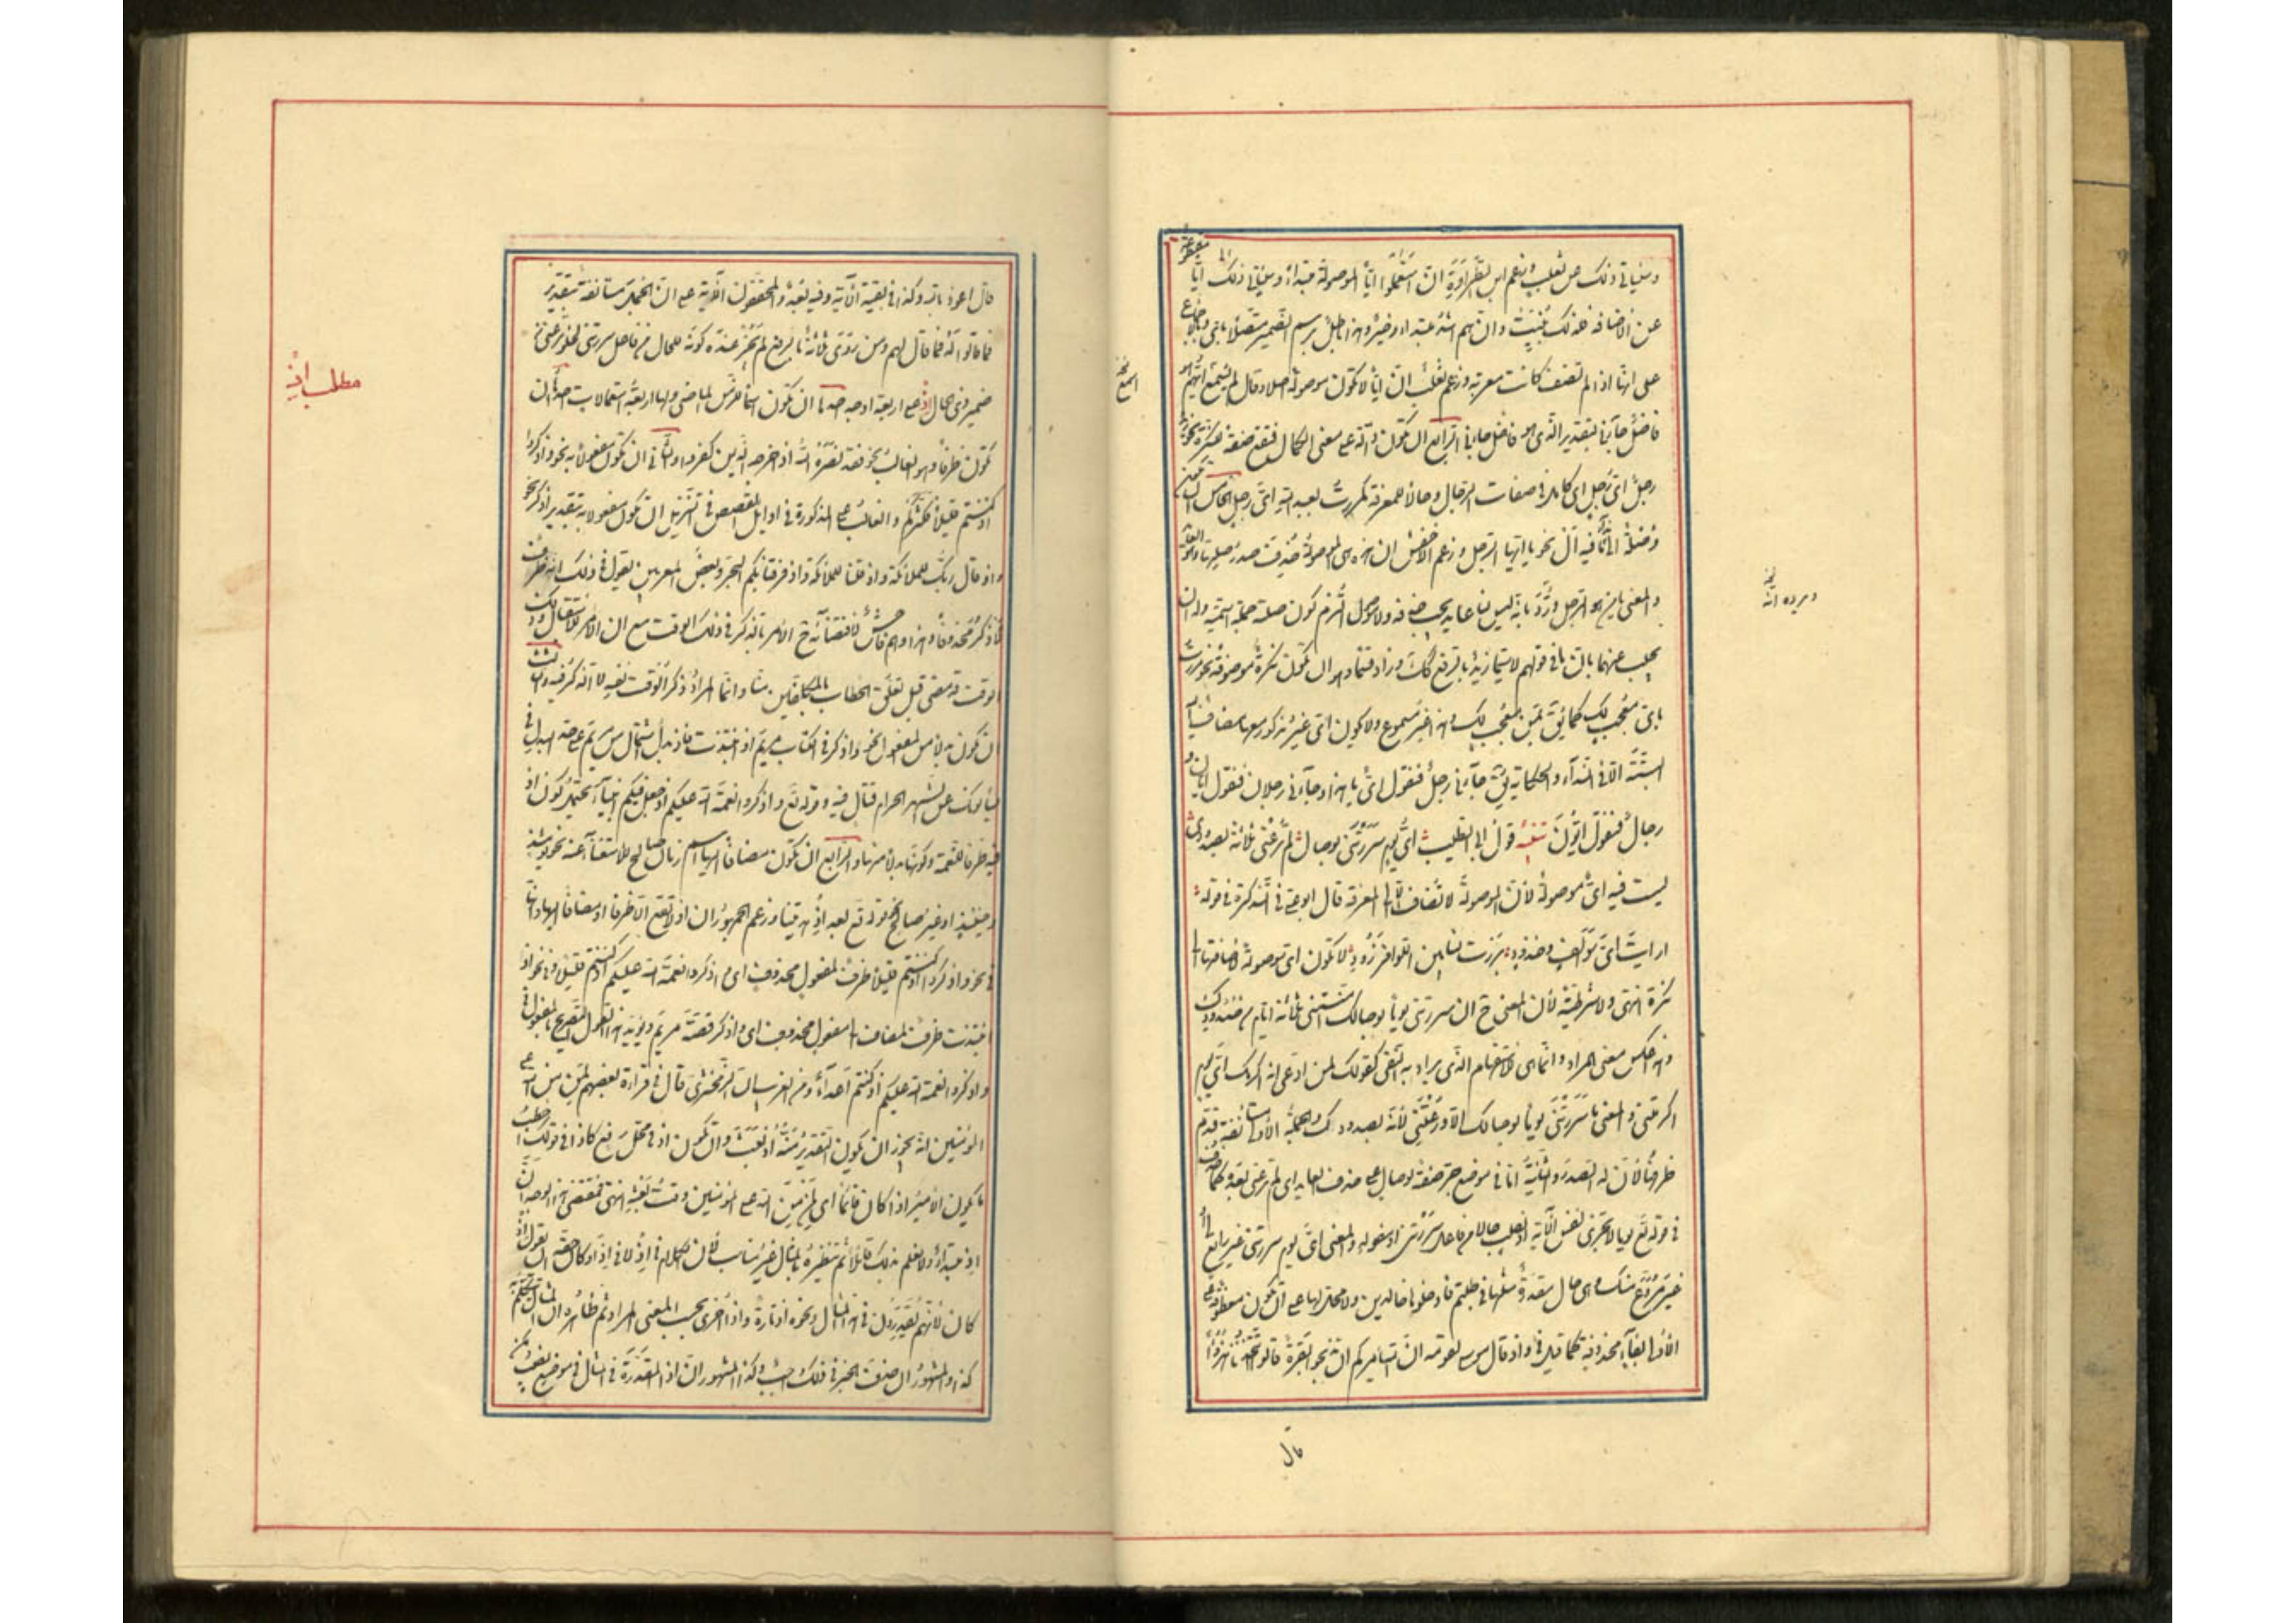 وسيأتي ذلك عن ثعلب وزعم ابن الطراوة ان أيا مقطوعة
عن الاضافة فلذلك بنيت وان هم اشد مبتدا وخبر وهذا باطل برسم الضمير متصلا بأي وبالاجماع
على انها اذا لم تضف كانت معربة وزعم ثعلب ان أيا لا تكون موصولة اصلا وقال لم يسمع ايهم هو
فاضل جاءني بتقدير الذي هو فاضل جاءني الرابع ان تكون دالة على معنى الكمال فتقع صفة للنكرة نحو زيد
رجل اي رجل اي كامل في صفات الرجال وحالا للمعرفة كمررت بعبد الله اي رجل الخامس ان تكون
وصلة الى ندا ما فيه ال نحو يا ايها الرجل وزعم الاخفش ان هذه هي الموصولة حذفت صدر صلتها وهو العائد
والمعنى يا من هو الرجل ورد بانه ليس لنا عايد يجب حذفه ولا موصول التزم كون صلته جملة اسمية وله ان
يجيب عنهما بان ما في قولهم لا سيما زيد بالرفع كذلك وزاد قسما وهو ان تكون نكرة موصوفة نحو مررت
باي معجب لك كما يق بمن معجب لك وهذا غير مسموع ولا يكون اي غير مذكور معها مضاف اليه
البتة الا في الندآء والحكاية يق جآءني رجل فتقول اي يا هذا وجآءني رجلان فتقول ايان و
رجال فتقول ايون تنبيه قول ابي الطيب اي يوم سررتني بوصال لم ترعني ثلاثة بصدود
ليست فيه اي موصولة لان الموصولة لا تضاف الا الى المعرفة قال ابو علي في التذكرة في قوله
ارايت اي سوالف وخدود برزت لنا بين اللوى فزرود لا تكون اي موصولة لاضافتها الى
نكرة انتهى ولا شرطية لان المعنى ح ان سررتني يوما بوصالك امنتني ثلاثة ايام من صدودك
وهذا عكس المعنى المراد وانما هي للاستفهام الذي يراد به النفي كقولك لمن ادعى انه اكرمك اي يوم
اكرمتني والمعنى ما سررتني يوما بوصالك الا روعتني ثلاثة بصدودك والجملة الاولى مستانفة قدم
ظرفها لان له الصدر والثانية اما في موضع جر صفة لوصال على حذف العايد اي لم ترعني بعده كما حذف
في قوله تع يوما لا تجزي نفس الآية او نصب حالا من فاعل سررتني او مفعوله والمعنى اي يوم سررتني غير رايع لي او
غير مروع منك وهي حال مقدرة مثلها في طبتم فادخلوها خالدين ولا محل لها على ان تكون معطوفة على
الاولى بفآء محذوفة كما قيل في واذ قال موسى لقومه ان الله يامركم ان تذبحوا بقرة قالوا اتتخذنا هزوا
قال
نخه
اسمع
نخه
ويرده انه
قال اعوذ بالله وكذا في بقية الآية وفيه بعد والمحققون في الآية على ان الجمل مستانفة بتقدير
فما قالوا له فما قال لهم ومن روى ثلاثة بالرفع لم يجز عنده كونه للحال من فاعل سررتني لخلو ترعني من
ضمير ذي الحال اذ على اربعة اوجه احدها ان تكون اسما للزمن الماضي ولها اربعة استعمالات احدها ان
تكون ظرفا وهو الغالب نحو فقد نصره الله اذ اخرجه الذين كفروا والثاني ان تكون مفعولا به نحو واذكروا
اذ كنتم قليلا فكثركم والغالب على المذكورة في اوايل القصص في التنزيل ان تكون مفعولا به بتقدير اذكر نحو
واذ قال ربك للملائكة واذ قلنا للملائكة واذ فرقنا بكم البحر وبعض المعربين يقول في ذلك انه ظرف
لاذكر محذوفا وهذا وهم فاحش لاقتضائه ح الامر بالذكر في ذلك الوقت مع ان الامر للاستقبال وذلك
الوقت قد مضى قبل تعلق الخطاب بالمكلفين منا وانما المراد ذكر الوقت نفسه لا الذكر فيه والثالث
ان تكون بدلا من المفعول نحو واذكر في الكتاب مريم اذ انتبذت فاذ بدل اشتمال من مريم على حد البدل في
يسألونك عن الشهر الحرام قتال فيه وقوله تع واذكروا نعمة الله عليكم اذ جعل فيكم انبيآء يحتمل كون اذ
فيه ظرفا للنعمة وكونها بدلا منها والرابع ان تكون مضافا اليها اسم زمان صالح للاستغنآء عنه نحو يومئذ
وحينئذ او غير صالح نحو قوله تع بعد اذ هديتنا وزعم الجمهور ان اذ لا تقع الا ظرفا او مضافا اليها وانها
في نحو واذكروا اذ كنتم قليلا ظرف لمفعول محذوف اي واذكروا نعمة الله عليكم اذ كنتم قليلا وفي نحو اذ
انتبذت ظرف لمضاف الى مفعول محذوف اي واذكر قصة مريم ويؤيد هذا القول التصريح بالمفعول في
واذكروا نعمة الله عليكم اذ كنتم اعدآء ومن الغريب ان الزمخشري قال في قراءة بعضهم لمن من الله على
المؤمنين انه يجوز ان يكون التقدير منه اذ بعث وان تكون اذ في محل رفع كاذا في قولك اخطب
ما يكون الامير اذا كان قائما اي لمن من الله على المؤمنين وقت بعثه انتهى فمقتضى هذا الوجه ان
اذ مبتدأ ولا نعلم بذلك قائلا ثم تنظيره بالمثال غير مناسب لان الكلام في اذ لا في اذا وكان حقه ان يقول اذ
كان لانهم يقدرون في هذا المثال ونحوه اذ تارة واذا اخرى بحسب المعنى المراد ثم ظاهره ان المثال يتكلم به
كذا والمشهور ان حذف الخبر في ذلك واجب وكذا المشهور ان اذا المقدرة في المثال في موضع نصب
مطلب اذ